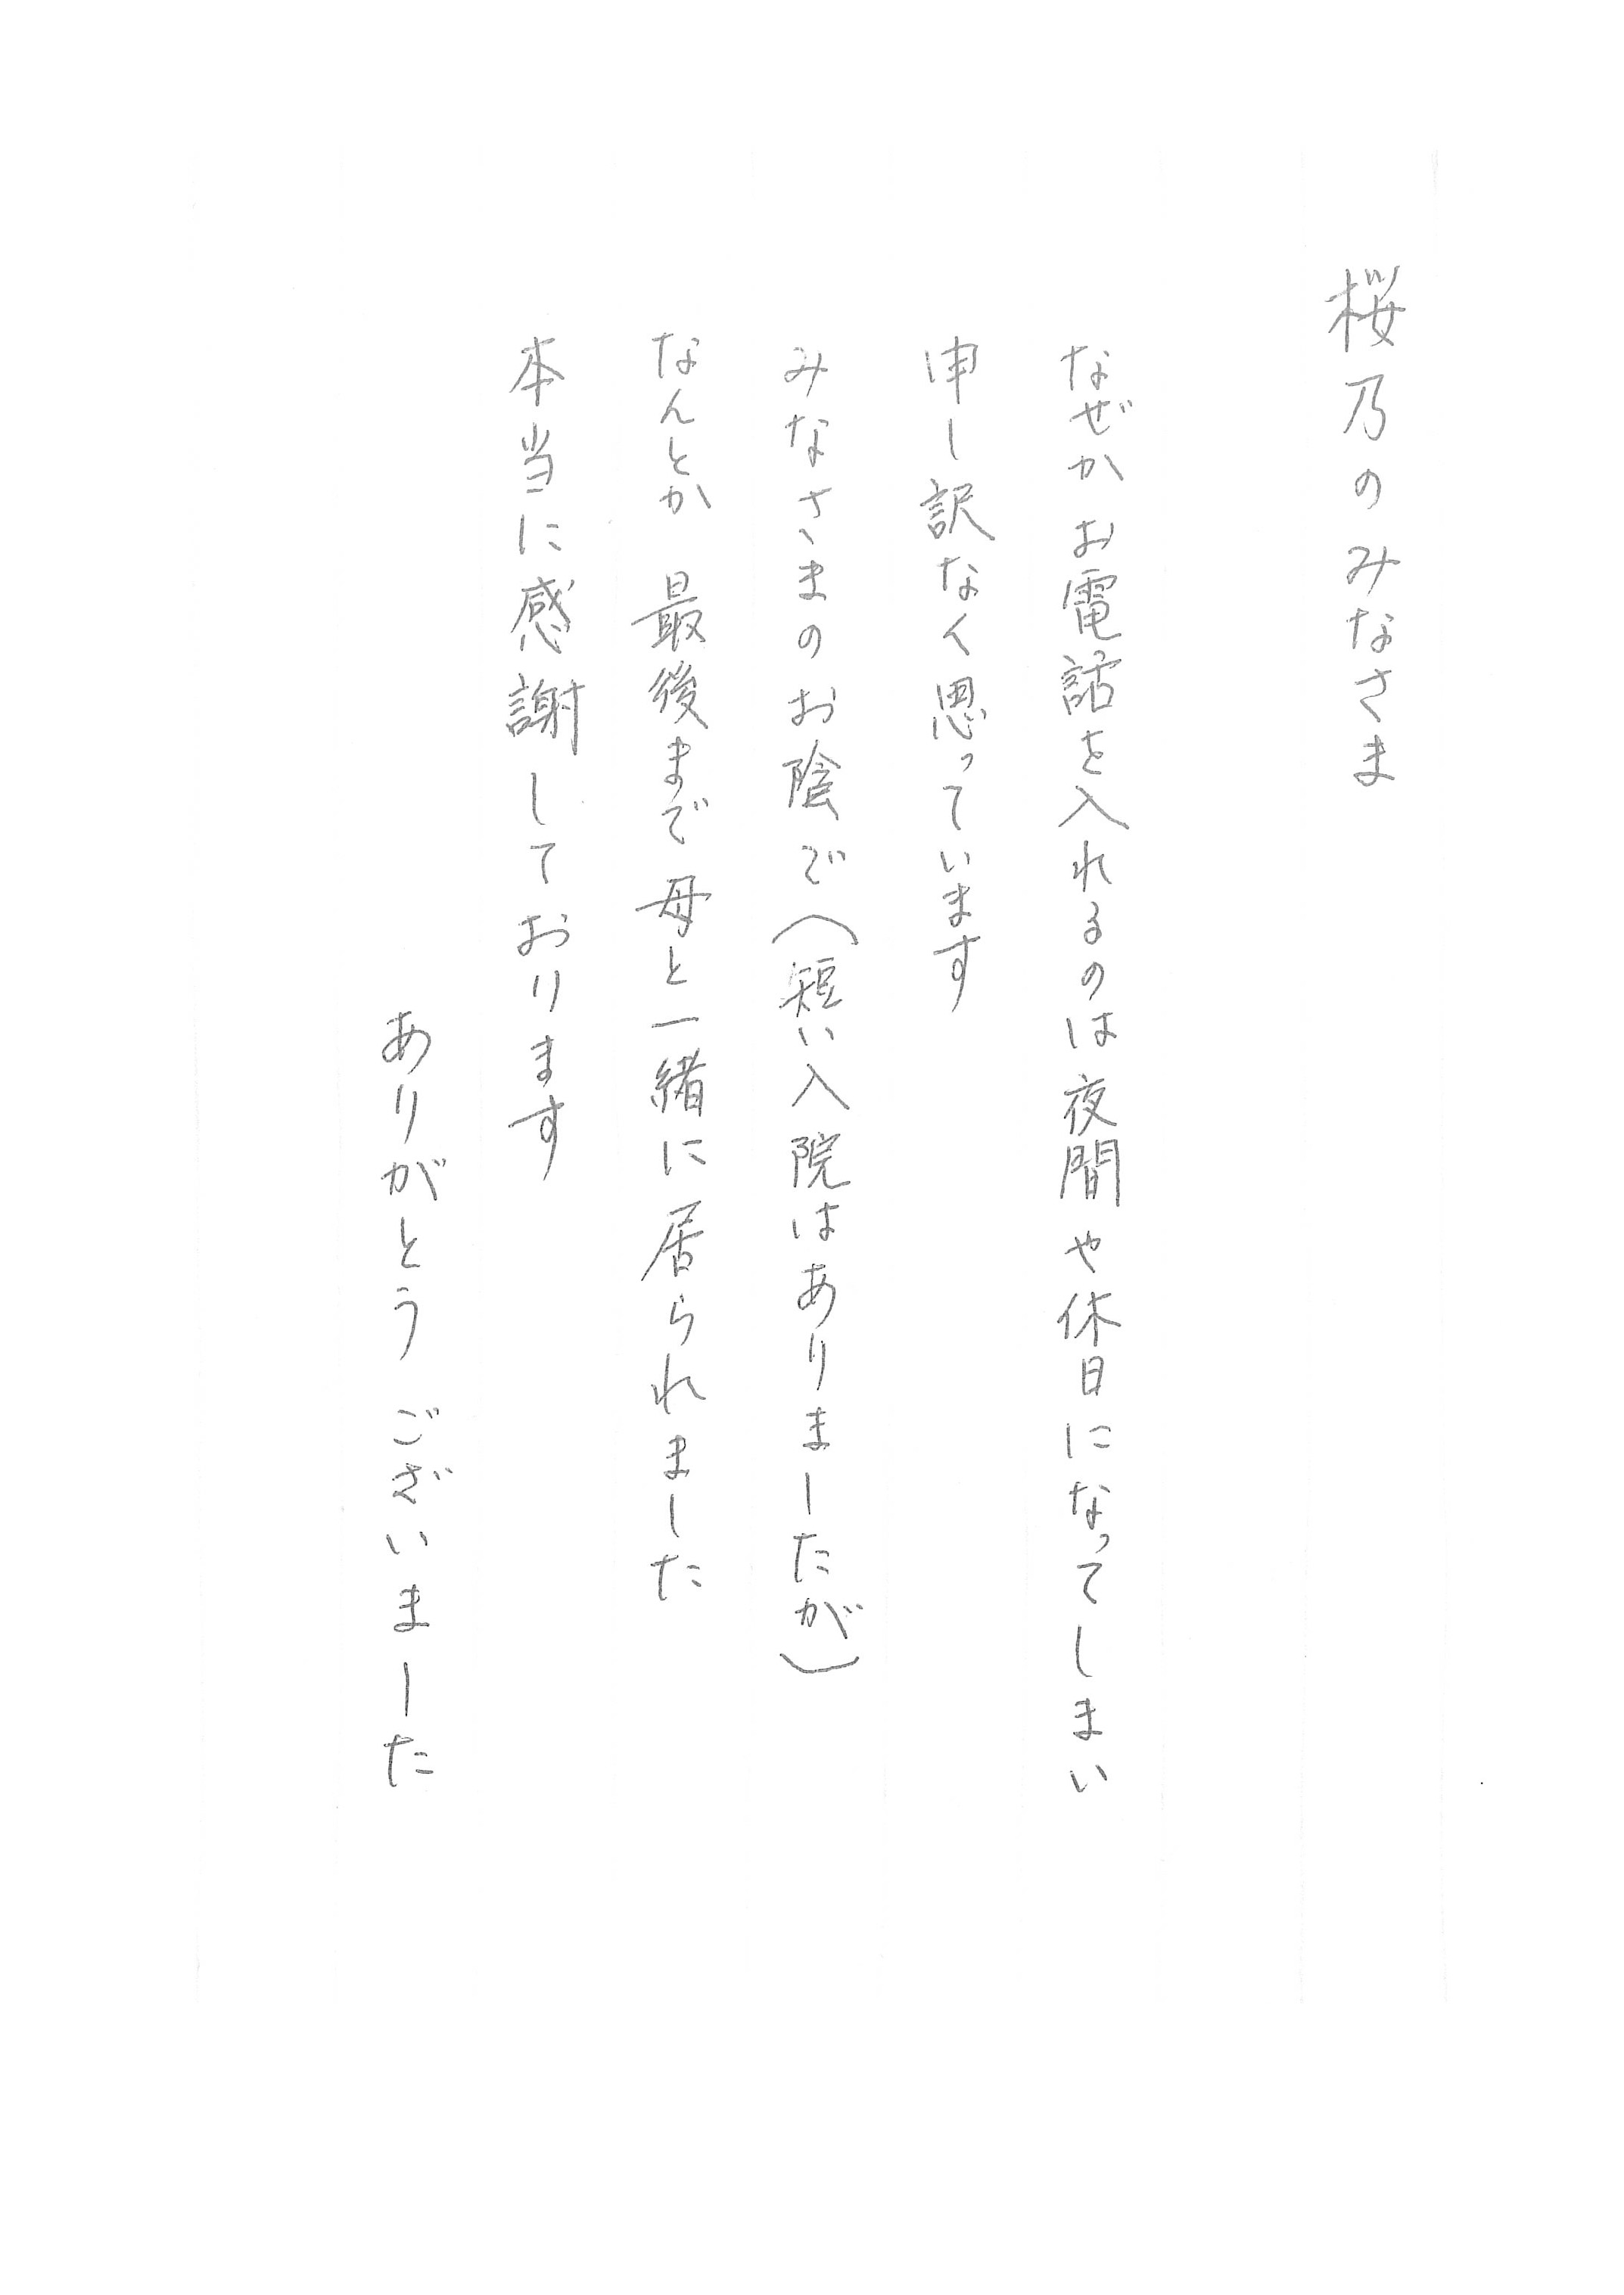 桜乃のみなさま
なぜかお電話を入れるのは夜間や休日になってしまい
申し訳なく思っています
みなさまのお陰で(短い入院はありましたが)
なんとか 最後まで母と一緒に居られました
本当に感謝しております
ありがとう ございました